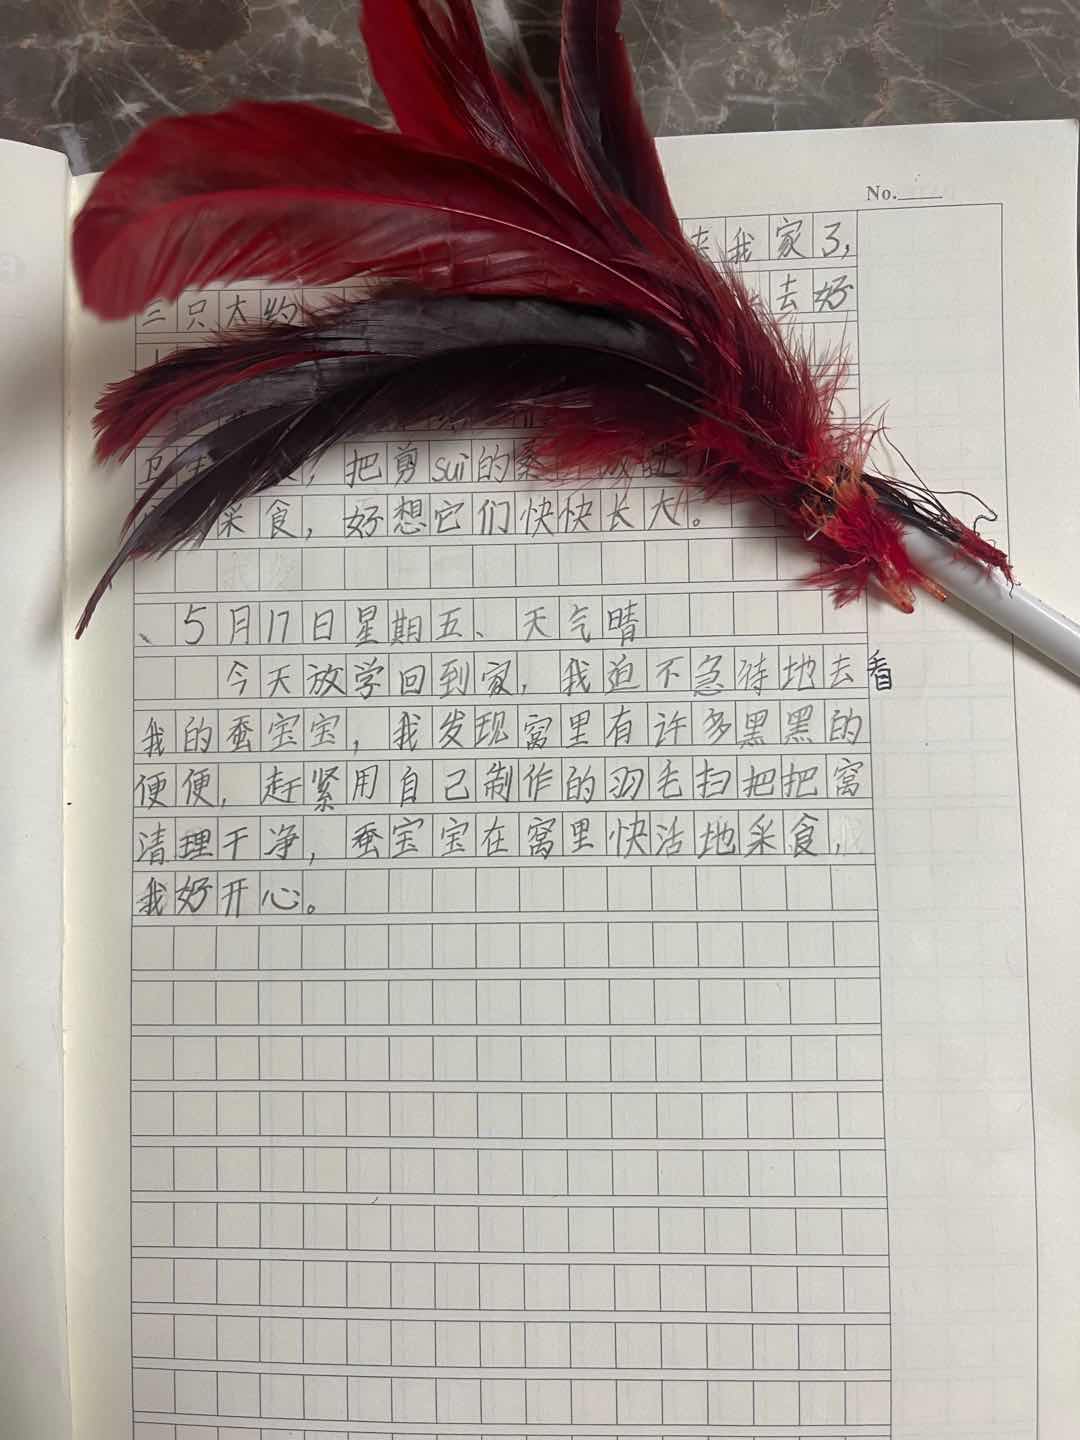 No.
来我家了，
三只大约 去好
，把剪sui的
采食，好想它们快快长大。
、5月17日星期五、天气晴
今天放学回到家，我迫不急待地去看
我的蚕宝宝，我发现窝里有许多黑黑的
便便，赶紧用自己制作的羽毛扫把把窝
清理干净，蚕宝宝在窝里快活地采食，
我好开心。